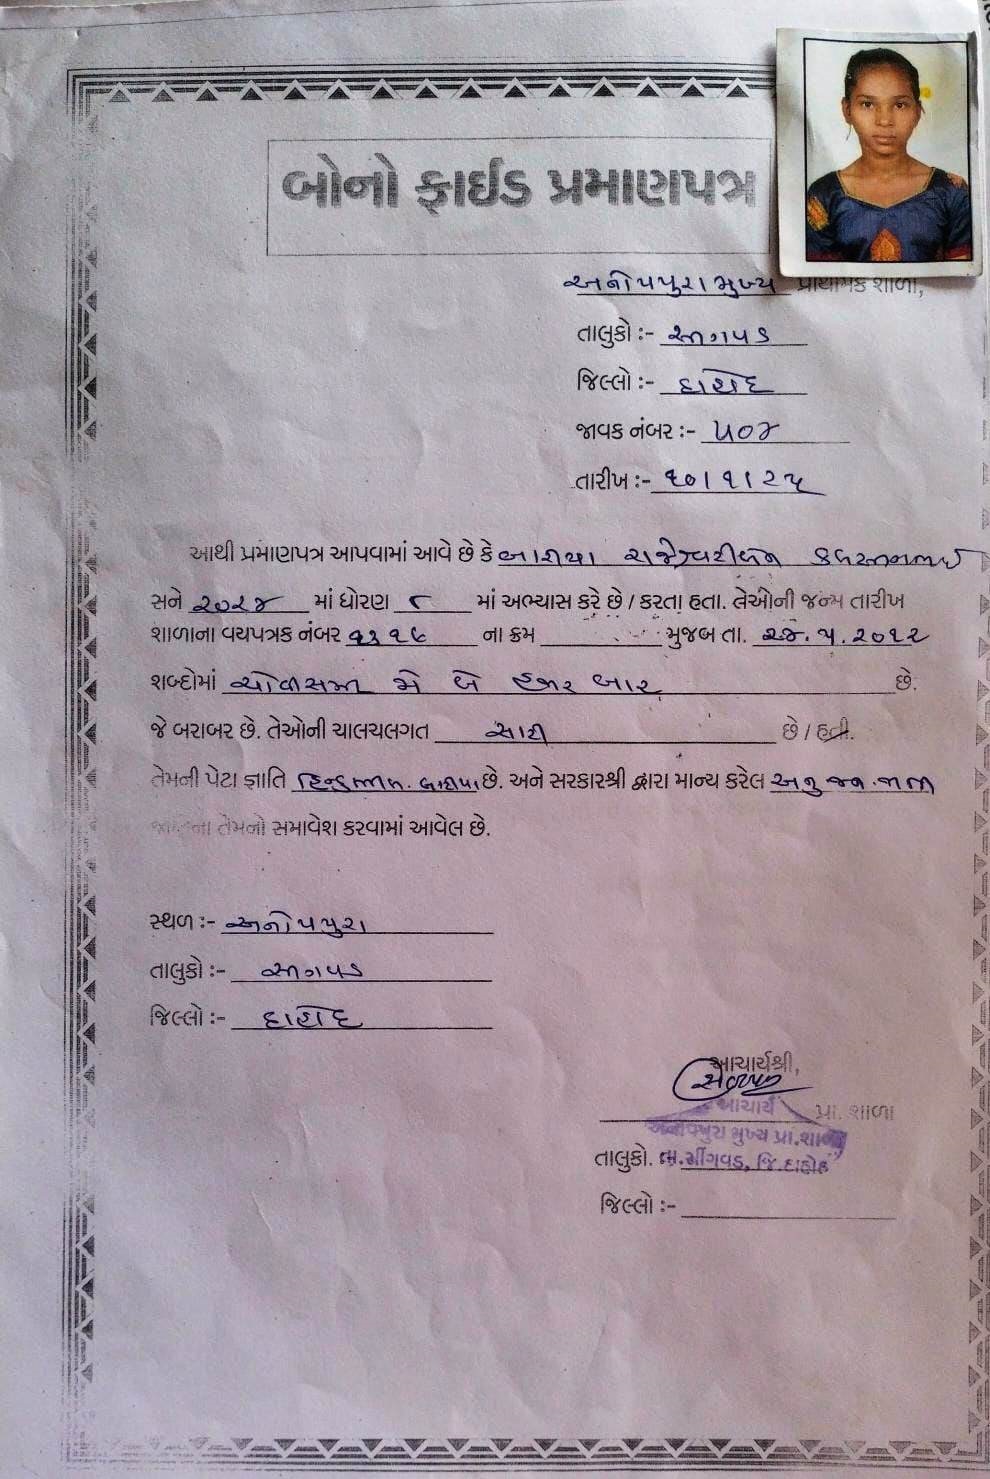 બોનો ફાઈડ પ્રમાણપત્ર
અનોપપુરા મુખ્ય પ્રાથમિક શાળા,
તાલુકો :- સીંગવડ
જિલ્લો :- દાહોદ
જાવક નંબર :- ૫૦૪
તારીખ :- ૧૦/૧/૨૫
આથી પ્રમાણપત્ર આપવામાં આવે છે કે બારીયા રાજેશ્વરીબેન
સને ૨૦૨૪ માં ધોરણ ૮ માં અભ્યાસ કરે છે / કરતા હતા. તેઓની જન્મ તારીખ
શાળાના વયપત્રક નંબર ના ક્રમ મુજબ તા. ૨૪.૫.૨૦૧૨
શબ્દોમાં ચોવીસમી મે બે હજાર બાર છે.
જે બરાબર છે. તેઓની ચાલચલગત સારી છે / હતી.
તેમની પેટા જ્ઞાતિ હિન્દુ બારીયા છે. અને સરકારશ્રી દ્વારા માન્ય કરેલ અનુ જન.જાતી
તેમનો સમાવેશ કરવામાં આવેલ છે.
સ્થળ :- અનોપપુરા
તાલુકો :- સીંગવડ
જિલ્લો :- દાહોદ
આચાર્યશ્રી,
આચાર્ય પ્રા. શાળા
અનોપપુરા મુખ્ય પ્રા.શાળા
તાલુકો. તા.સીંગવડ, જિ.દાહોદ
જિલ્લો :-